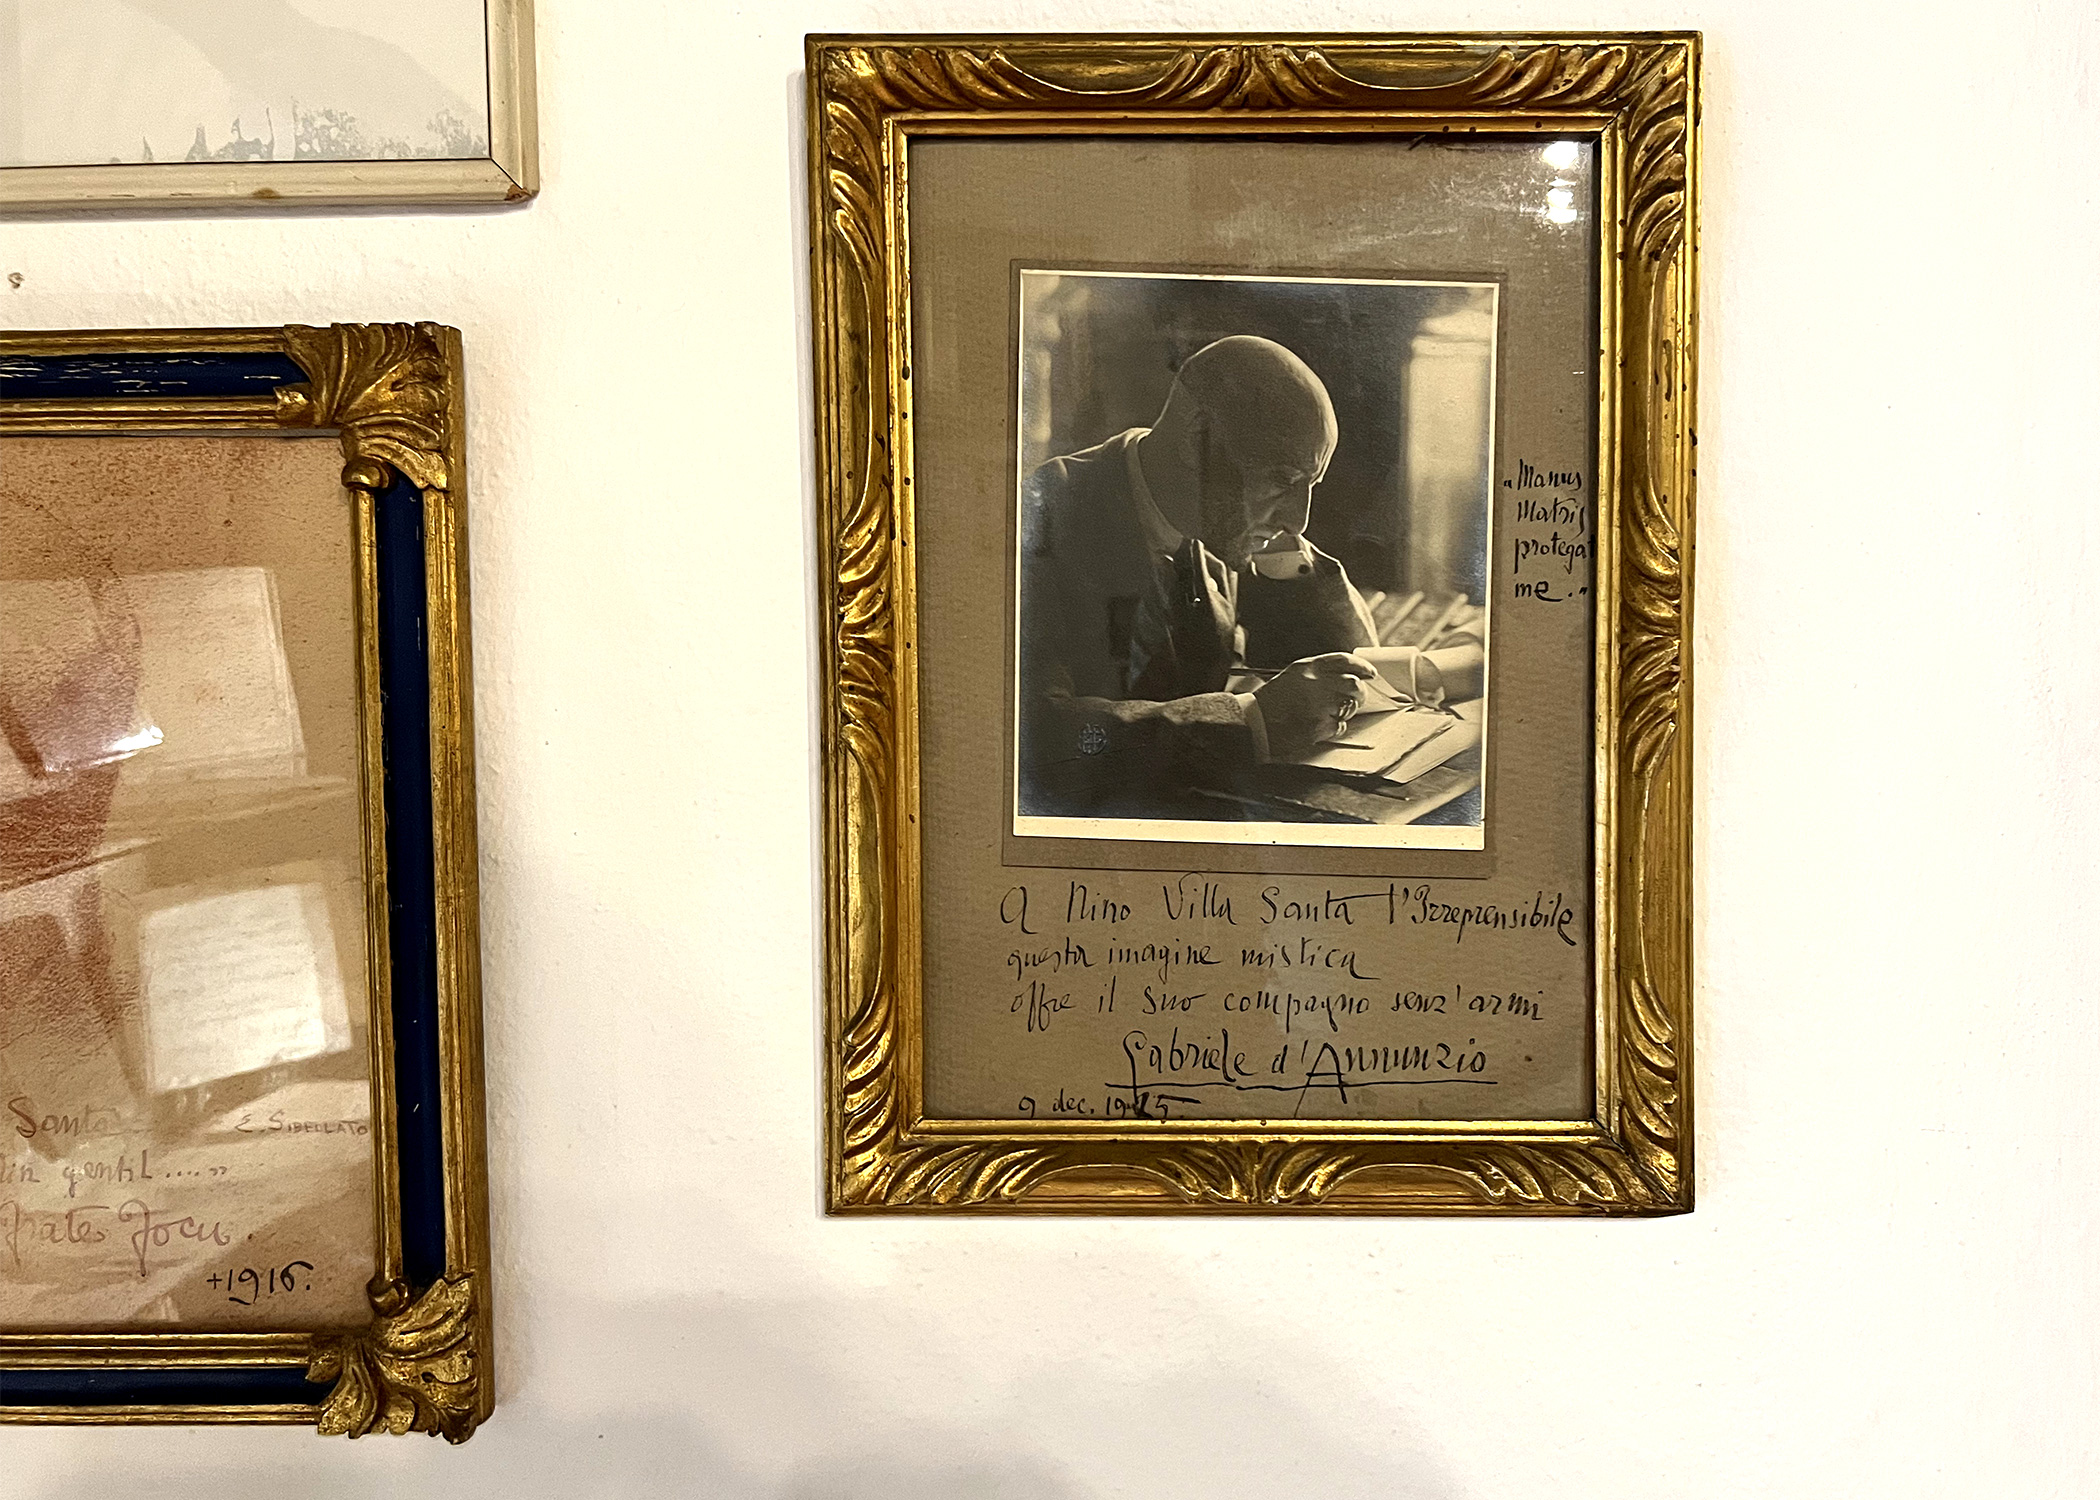 Santa
E. SIBELLATO
gentil....”
Frate Focu.
+1916.
“Manus
Matris
protegat
me.”
A Nino Villa Santa l'Irreprensibile
questa imagine mistica
offre il suo compagno senz'armi
Gabriele d'Annunzio
9 dec. 1925.